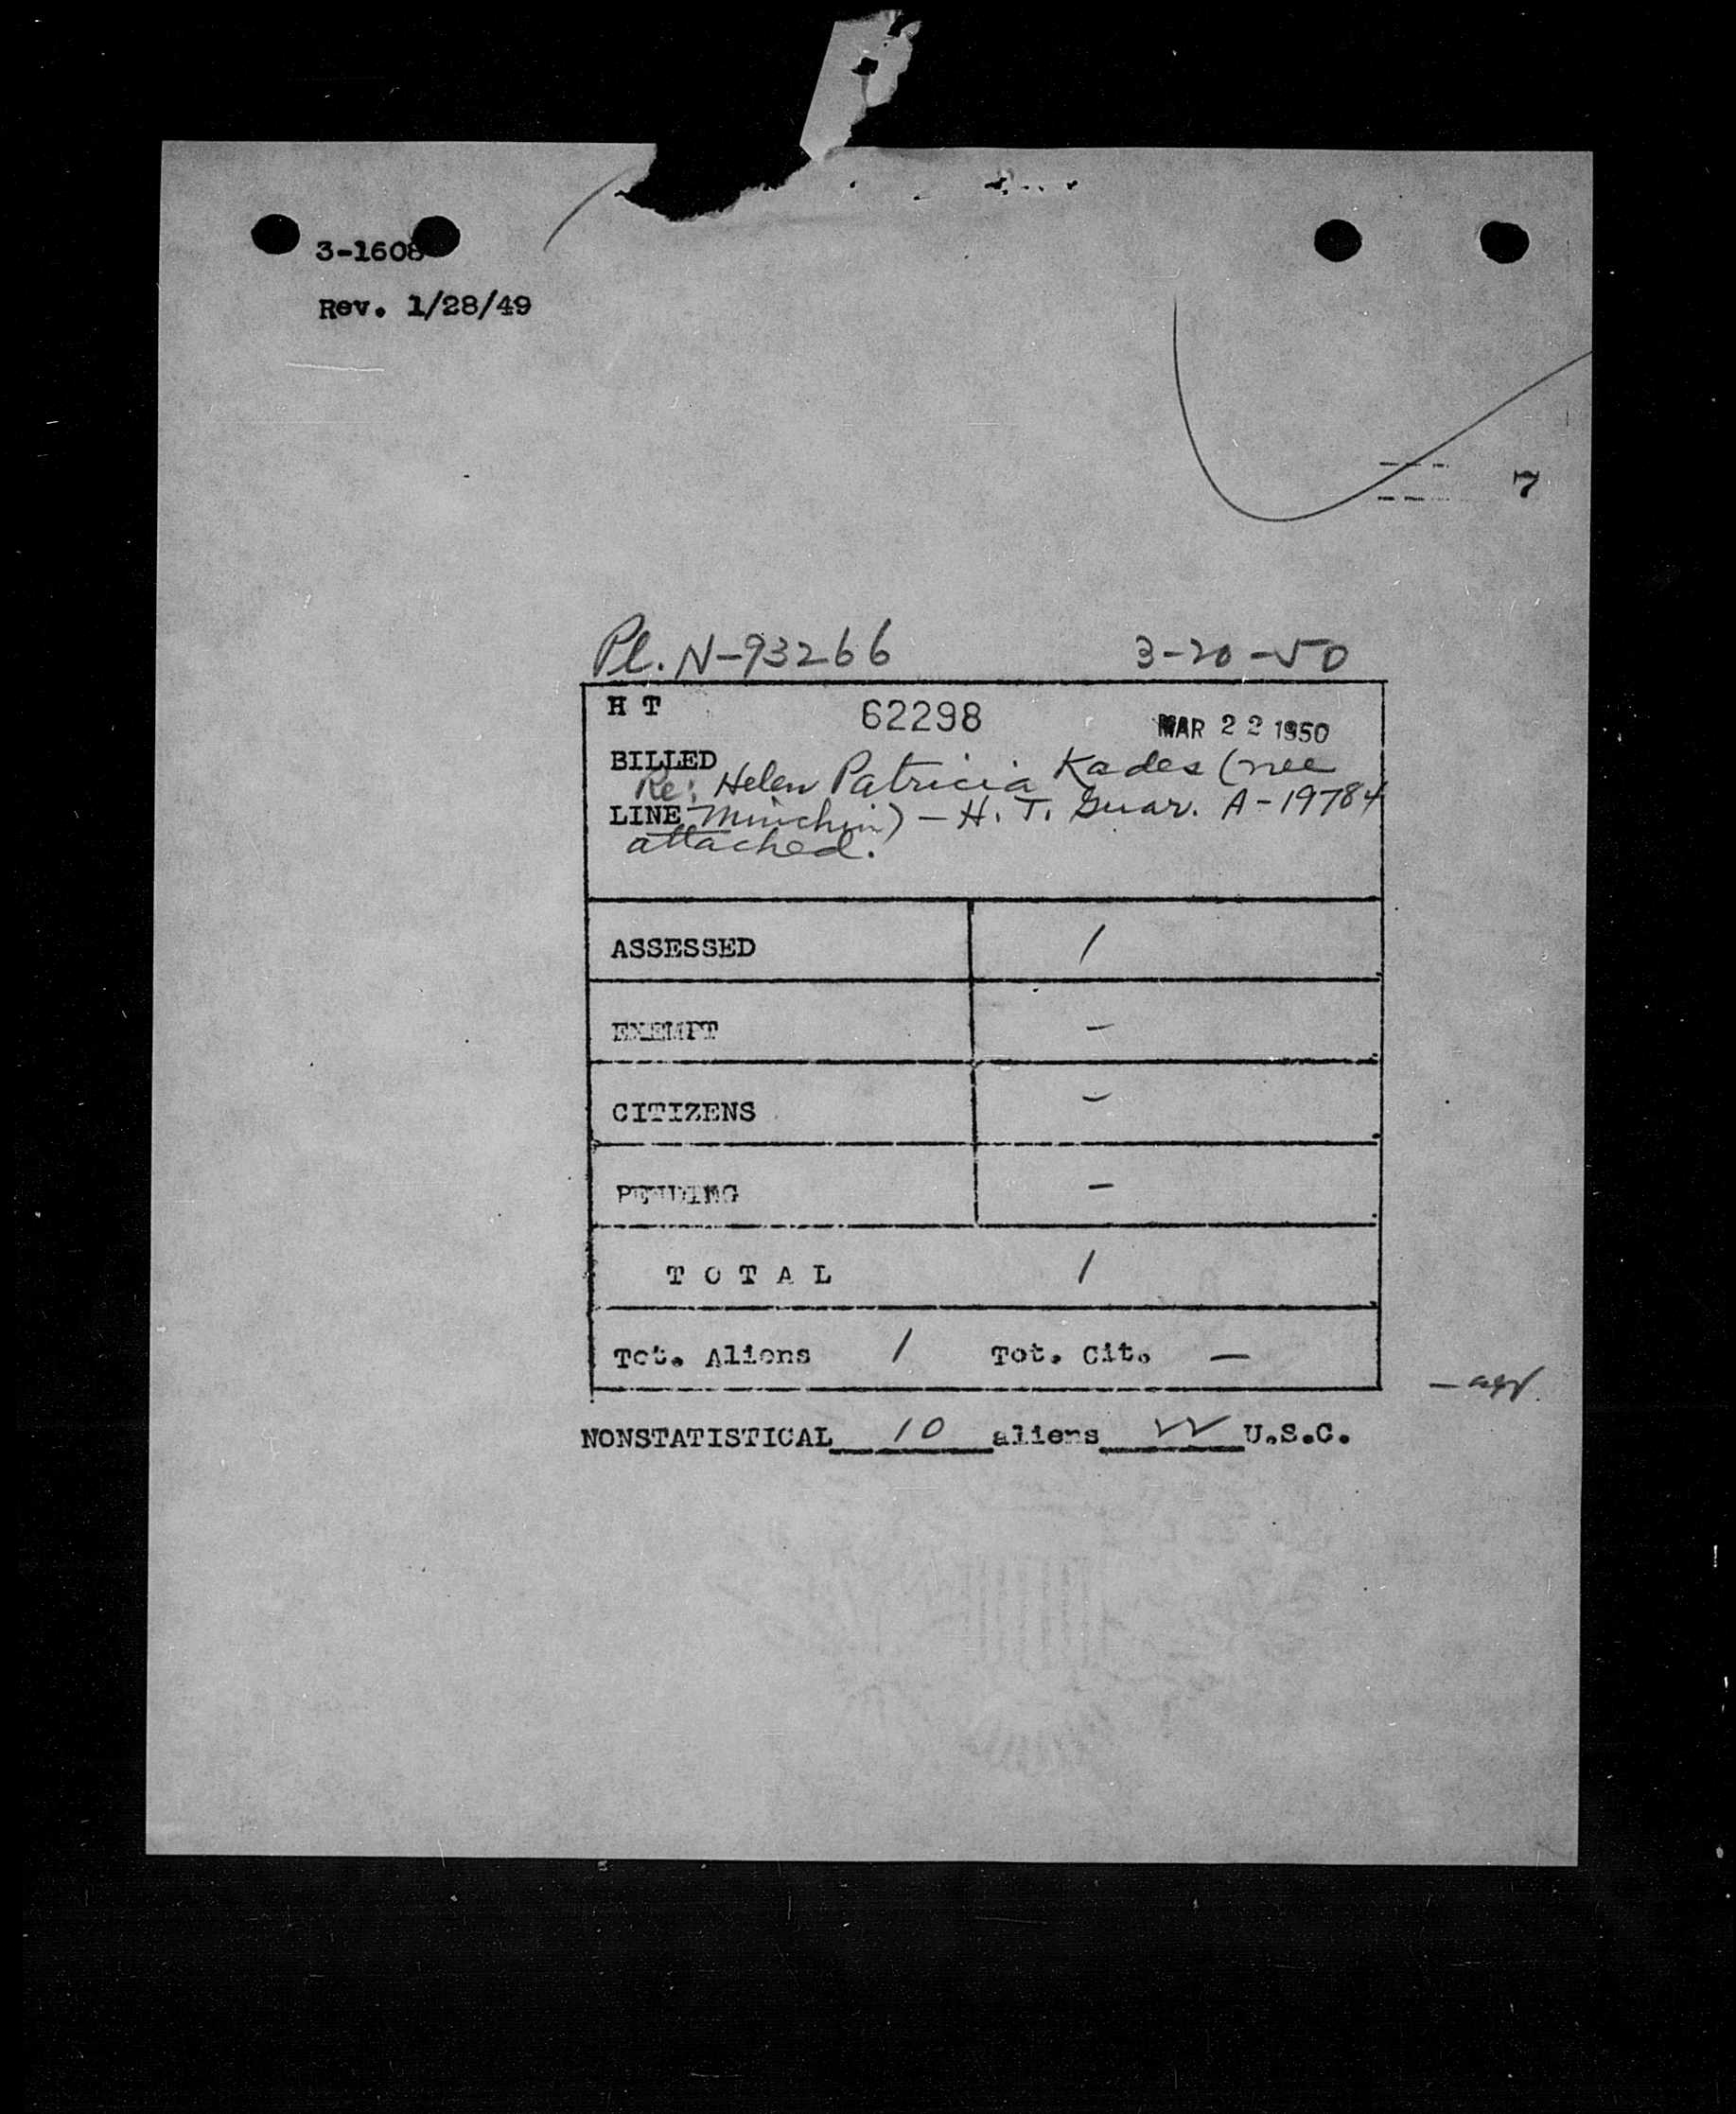 3-1608
Rev. 1/28/49
7
Pl. N-93266 3-20-50
H T 62298 MAR 22 1950
BILLED
Re: Helen Patricia Kades (nee
LINE Minchin) - H. T. Guar. A-19784
attached.
ASSESSED /
EXEMPT -
CITIZENS -
PENDING -
T O T A L /
Tot. Aliens / Tot. Cit. -
NONSTATISTICAL 10 aliens U.S.C.